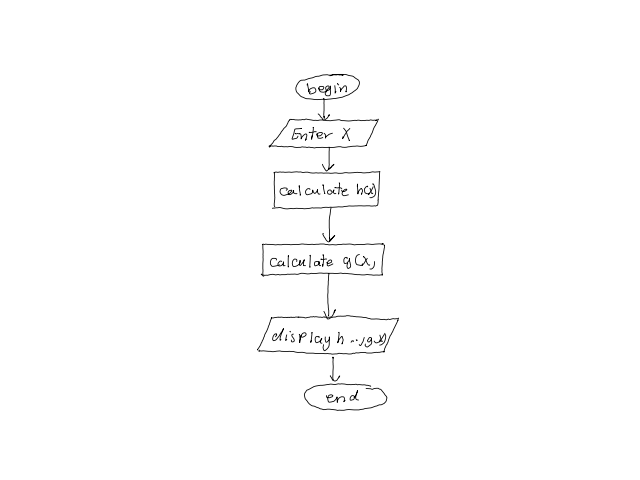 begin
Enter X
calculate h(x)
calculate g(x)
display h
end